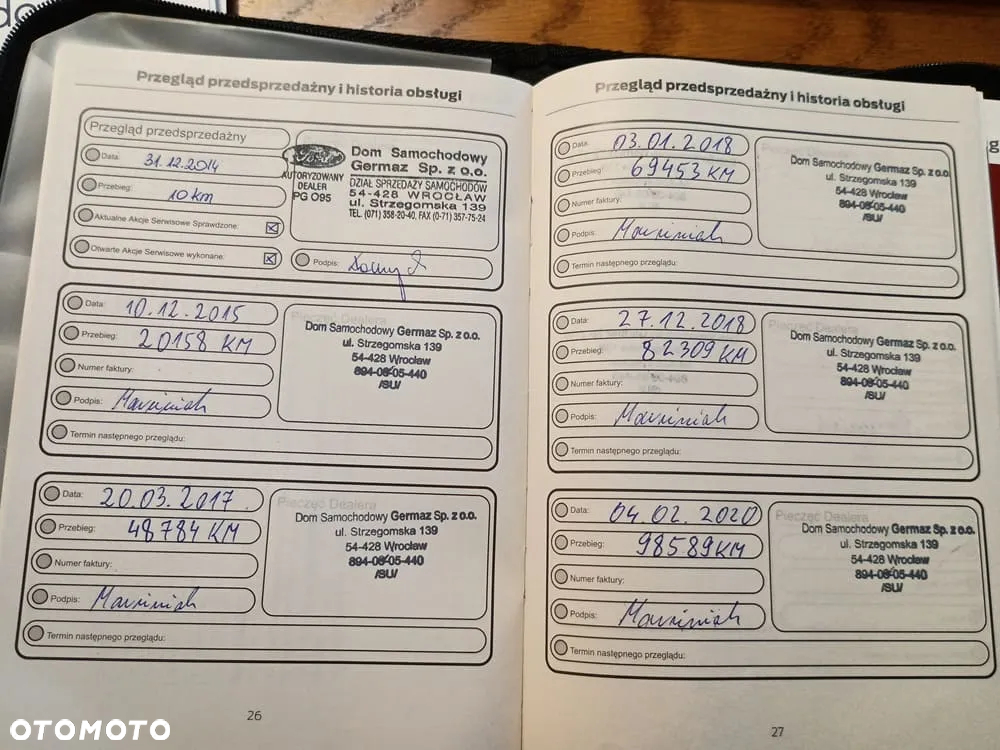 Przegląd przedsprzedażny i historia obsługi
Przegląd przedsprzedażny
Data: 31.12.2014
Przebieg: 10 km
Aktualne Akcje Serwisowe Sprawdzone:
Otwarte Akcje Serwisowe wykonane:
Ford
AUTORYZOWANY
DEALER
PG O95
Dom Samochodowy
Germaz Sp. z o.o.
DZIAŁ SPRZEDAŻY SAMOCHODÓW
54-428 WROCŁAW
ul. Strzegomska 139
TEL. (071) 358-20-40, FAX (0-71) 357-75-24
Podpis:
Data: 10.12.2015
Przebieg: 20158 KM
Numer faktury:
Podpis: Marciniak
Termin następnego przeglądu:
Pieczęć Dealera
Dom Samochodowy Germaz Sp. z o.o.
ul. Strzegomska 139
54-428 Wrocław
894-08-05-440
/SU/
Data: 20.03.2017.
Przebieg: 48784 KM
Numer faktury:
Podpis: Marciniak
Termin następnego przeglądu:
Pieczęć Dealera
Dom Samochodowy Germaz Sp. z o.o.
ul. Strzegomska 139
54-428 Wrocław
894-08-05-440
/SU/
26
Przegląd przedsprzedażny i historia obsługi
Data: 03.01.2018
Przebieg: 69453 KM
Numer faktury:
Podpis: Marciniak
Termin następnego przeglądu:
Dom Samochodowy Germaz Sp. z o.o.
ul. Strzegomska 139
54-428 Wrocław
894-08-05-440
/SU/
Data: 27.12.2018
Przebieg: 82309 KM
Numer faktury:
Podpis: Marciniak
Termin następnego przeglądu:
Pieczęć Dealera
Dom Samochodowy Germaz Sp. z o.o.
ul. Strzegomska 139
54-428 Wrocław
894-08-05-440
/SU/
Data: 04.02.2020
Przebieg: 98589 KM
Numer faktury:
Podpis: Marciniak
Termin następnego przeglądu:
Pieczęć Dealera
Dom Samochodowy Germaz Sp. z o.o.
ul. Strzegomska 139
54-428 Wrocław
894-08-05-440
/SU/
27
OTOMOTO